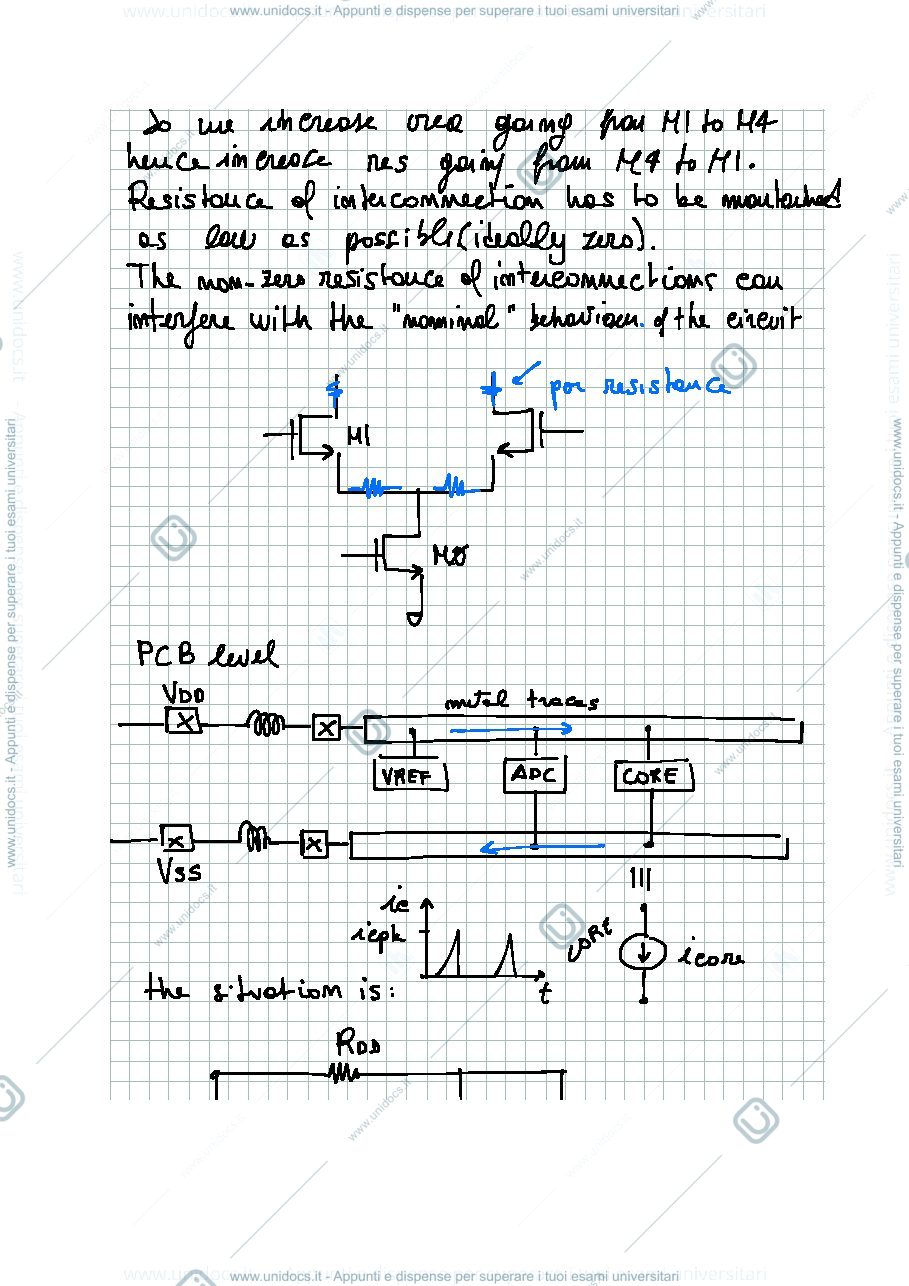 www.unidocs.it - Appunti e dispense per superare i tuoi esami universitari
So we increase area going from M1 to M4
hence increase res going from M4 to M1.
Resistance of interconnection has to be mantained
as low as possible (ideally zero).
The non-zero resistance of interconnections can
interfere with the "nominal" behaviour of the circuit
par resistance
M1
M0
PCB level
VDD
metal traces
X
X
VREF
ADC
CORE
X
X
VSS
ic
icpk
CORE
icore
the situation is:
t
RDD
www.unidocs.it - Appunti e dispense per superare i tuoi esami universitari
www.unidocs.it - Appunti e dispense per superare i tuoi esami universitari
www.unidocs.it - Appunti e dispense per superare i tuoi esami universitari